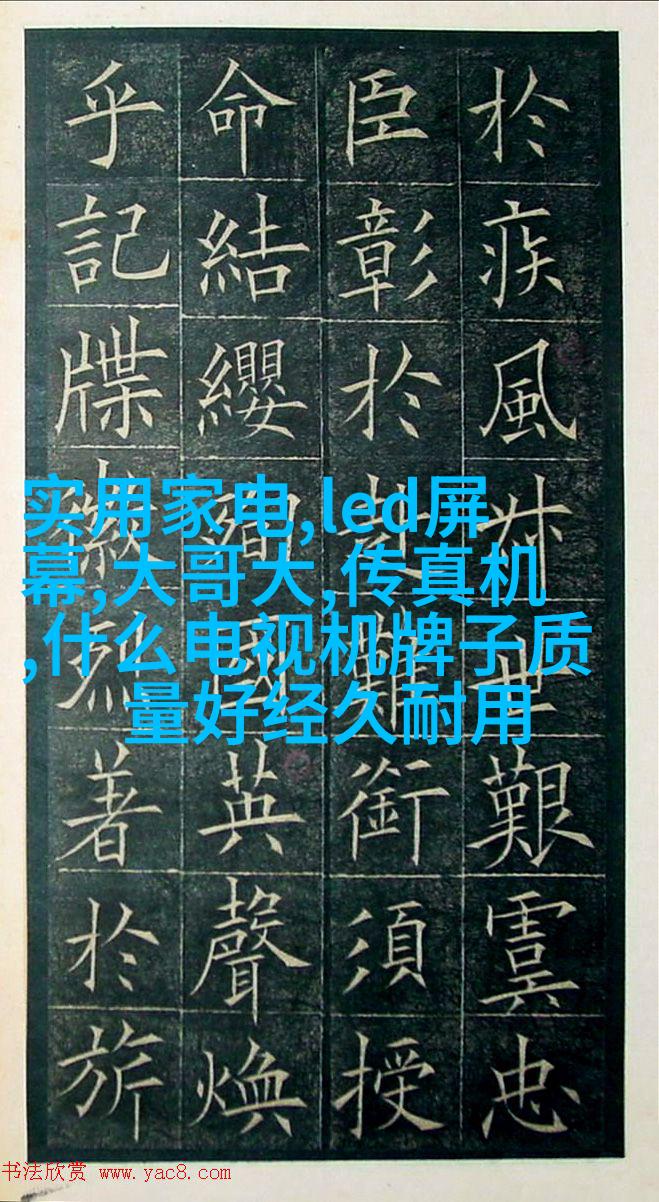 於疾風世艱虞忠
臣彰於赴難銜須授
命結纓殉國英聲煥
乎記牒徽烈著於旂
实用家电,led屏
幕,大哥大,传真机
,什么电视机牌子质
量好经久耐用
书法欣赏 www.yac8.com